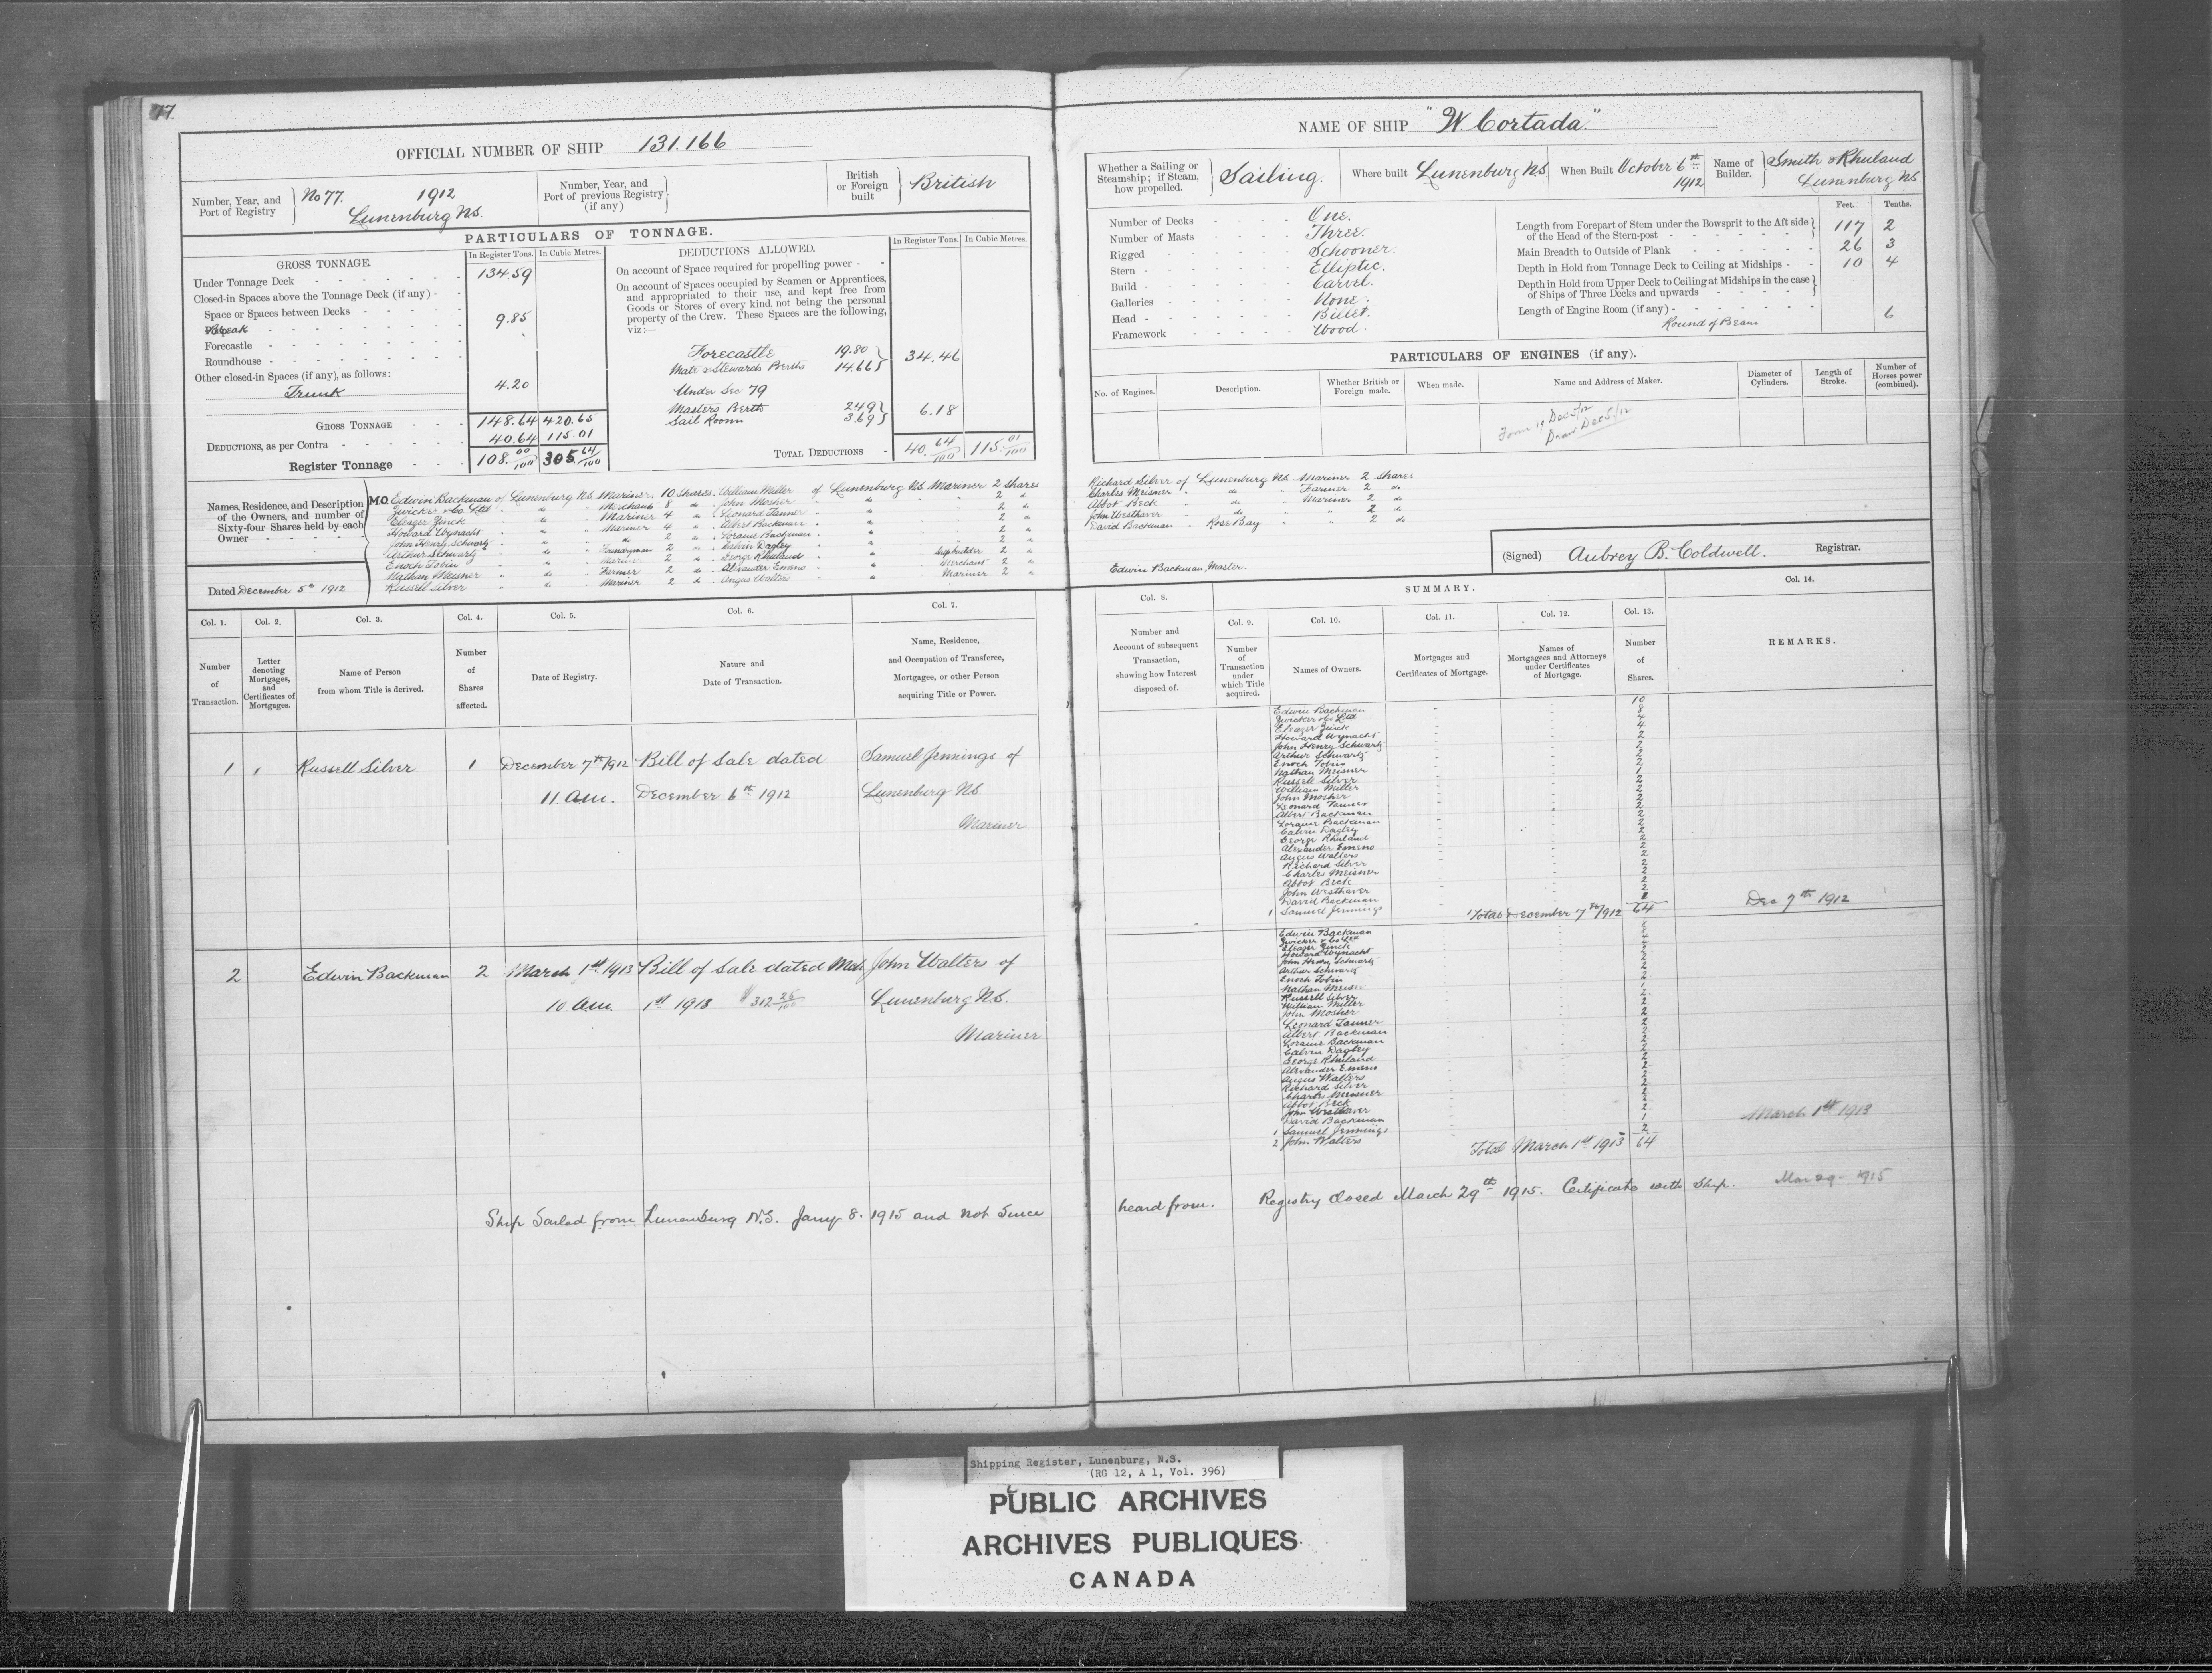 77.
OFFICIAL NUMBER OF SHIP 131.166
Number, Year, and Port of Registry } No 77. 1912
Lunenburg N.S.
Number, Year, and Port of previous Registry (if any) }
British or Foreign built } British
PARTICULARS OF TONNAGE.
GROSS TONNAGE.
In Register Tons. In Cubic Metres.
Under Tonnage Deck 134.59
Closed-in Spaces above the Tonnage Deck (if any) -
Space or Spaces between Decks
Break 9.85
Forecastle
Roundhouse
Other closed-in Spaces (if any), as follows:
Trunk 4.20
GROSS TONNAGE 148.64 420.65
DEDUCTIONS, as per Contra 40.64 115.01
Register Tonnage 108.00/100 305.64/100
DEDUCTIONS ALLOWED.
In Register Tons. In Cubic Metres.
On account of Space required for propelling power -
On account of Spaces occupied by Seamen or Apprentices, and appropriated to their use, and kept free from Goods or Stores of every kind, not being the personal property of the Crew. These Spaces are the following, viz:—
Forecastle 19.80
Mate & Stewards Berths 14.66 } 34.46
Under Sec 79
Masters Berth 2.49
Sail Room 3.69 } 6.18
TOTAL DEDUCTIONS 40.64/100 115.01/100
Names, Residence, and Description of the Owners, and number of Sixty-four Shares held by each Owner
M.O. Edwin Backman of Lunenburg N.S. Mariner 10 Shares. William Miller of Lunenburg N.S. Mariner 2 Shares
Zwicker & Co. Ltd " " Merchants 8 do. John Mosher " " 2 "
Eleazer Zinck " do " Mariner 4 do. Leonard Tanner " " 2 "
Howard Wynacht " " Mariner 4 " Albert Backman " " 2 "
John Henry Schwartz " do " " 2 do. Loraine Backman " " 2 "
Arthur Schwartz " do 2 " Calvin Dagley " " 2 "
Enoch Tobin " " Mariner 2 do. George Rhuland " Shipbuilder 2 "
Nathan Meisner " do " Farmer 2 do. Alexander Emeno " Merchant 2 "
Russell Silver " do " Mariner 2 do. Angus Walters " Mariner 2 "
Dated December 5th 1912
NAME OF SHIP "W. Cortada."
Whether a Sailing or Steamship; if Steam, how propelled. } Sailing.
Where built Lunenburg N.S.
When Built October 6th 1912
Name of Builder. } Smith & Rhuland
Lunenburg N.S.
Number of Decks One.
Number of Masts Three.
Rigged Schooner.
Stern Elliptic.
Build Carvel.
Galleries None.
Head Billet.
Framework Wood.
Feet. Tenths.
Length from Forepart of Stem under the Bowsprit to the Aft side of the Head of the Stern-post 117 2
Main Breadth to Outside of Plank 26 3
Depth in Hold from Tonnage Deck to Ceiling at Midships 10 4
Depth in Hold from Upper Deck to Ceiling at Midships in the case of Ships of Three Decks and upwards
Length of Engine Room (if any)
Round of Beam 6
PARTICULARS OF ENGINES (if any).
No. of Engines. Description. Whether British or Foreign made. When made. Name and Address of Maker. Diameter of Cylinders. Length of Stroke. Number of Horses power (combined).
Form 19 Dec 5/12
Draw Dec 5/12
Richard Silver of Lunenburg N.S. Mariner 2 Shares
Charles Meisner " do " Farmer 2 do
Abbot Beck " do " Mariner 2 do
John Westhaver " do " " 2 do
David Backman " Rose Bay " " 2 do
Edwin Backman, Master.
(Signed) Aubrey B. Coldwell. Registrar.
Col. 1. Col. 2. Col. 3. Col. 4. Col. 5. Col. 6. Col. 7.
Number of Transaction. Letter denoting Mortgages, and Certificates of Mortgages. Name of Person from whom Title is derived. Number of Shares affected. Date of Registry. Nature and Date of Transaction. Name, Residence, and Occupation of Transferee, Mortgages, or other Person acquiring Title or Power.
Col. 8. SUMMARY. Col. 14.
Col. 9. Col. 10. Col. 11. Col. 12. Col. 13.
Number and Account of subsequent Transaction, showing how Interest disposed of. Number of Transaction under which Title acquired. Names of Owners. Mortgages and Certificates of Mortgage. Names of Mortgagees and Attorneys under Certificates of Mortgage. Number of Shares. REMARKS.
1 Russell Silver 1 December 7th/1912 Bill of Sale dated Samuel Jennings of
11 a.m. December 6th 1912 Lunenburg N.S.
Mariner
Edwin Backman 10
Zwicker & Co Ltd 8
Eleazer Zinck 4
Howard Wynacht 4
John Henry Schwartz 2
Arthur Schwartz 2
Enoch Tobin 2
Nathan Meisner 2
Russell Silver 1
William Miller 2
John Mosher 2
Leonard Tanner 2
Albert Backman 2
Loraine Backman 2
Calvin Dagley 2
George Rhuland 2
Alexander Emeno 2
Angus Walters 2
Richard Silver 2
Charles Meisner 2
Abbot Beck 2
John Westhaver 2
David Backman 2
1 Samuel Jennings
Total December 7th/1912 64 Dec 7th 1912
2 Edwin Backman 2 March 1st 1913 Bill of Sale dated Mch John Walters of
10 a.m. 1st 1913 $312 25/100 Lunenburg N.S.
Mariner
Edwin Backman
Zwicker & Co Ltd
Eleazer Zinck
Howard Wynacht
John Henry Schwartz
Arthur Schwartz
Enoch Tobin
Nathan Meisner
Russell Silver
William Miller
John Mosher
Leonard Tanner
Albert Backman
Loraine Backman
Calvin Dagley
George Rhuland
Alexander Emeno
Angus Walters
Richard Silver
Charles Meisner
Abbot Beck
John Westhaver
David Backman
1 Samuel Jennings 1
2 John Walters 2
Total March 1st 1913 64 March 1st 1913
Ship Sailed from Lunenburg N.S. Jany 8. 1915 and not since heard from. Registry Closed March 29th 1915. Certificate with Ship. Mar 29- 1915
Shipping Register, Lunenburg, N.S.
(RG 12, A 1, Vol. 396)
PUBLIC ARCHIVES
ARCHIVES PUBLIQUES
CANADA